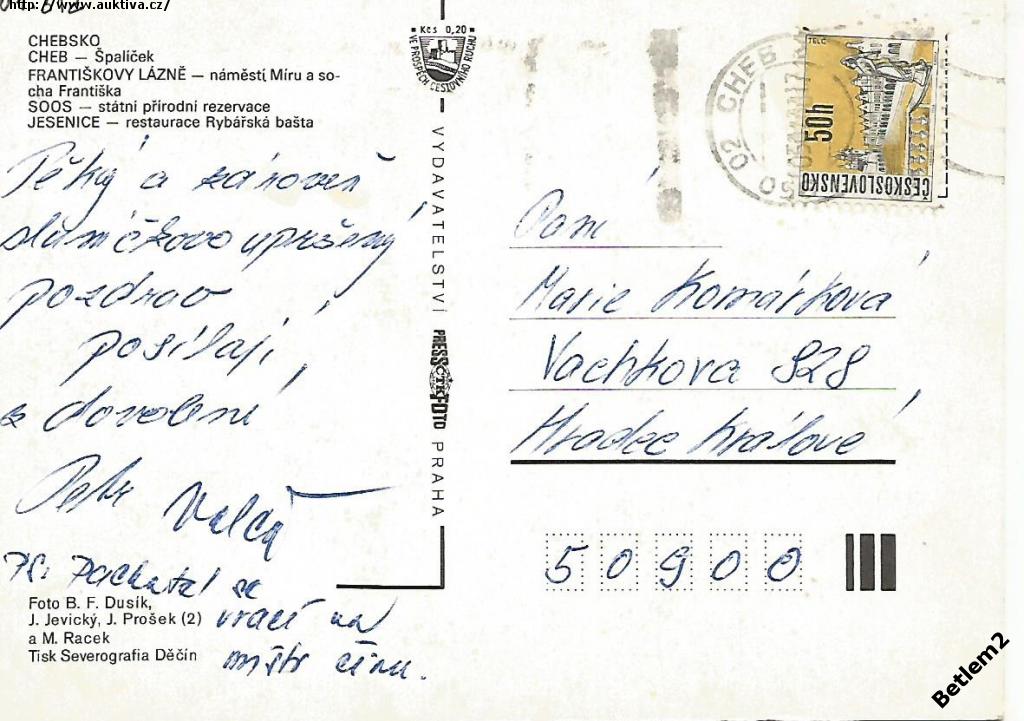 http://www.auktiva.cz/
CHEBSKO
CHEB — Špalíček
FRANTIŠKOVY LÁZNĚ — náměstí Míru a so-
cha Františka
SOOS — státní přírodní rezervace
JESENICE — restaurace Rybářská bašta
Kčs 0,20
VE PROSPĚCH CESTOVNÍHO RUCHU
Pěkný a zároveň
sluníčkovo upršený
pozdrav
posílají
z dovolené
Petr
PS: Pachatel se
vrací na
místo činu.
Foto B. F. Dusík,
J. Jevický, J. Prošek (2)
a M. Racek
Tisk Severografia Děčín
VYDAVATELSTVÍ PRESSFOTO PRAHA
ČTK
02 CHEB
TELČ
50h
ČESKOSLOVENSKO
Paní
Marie Komárková
Vachkova 828
Hradec Králové
50900
Betlem2